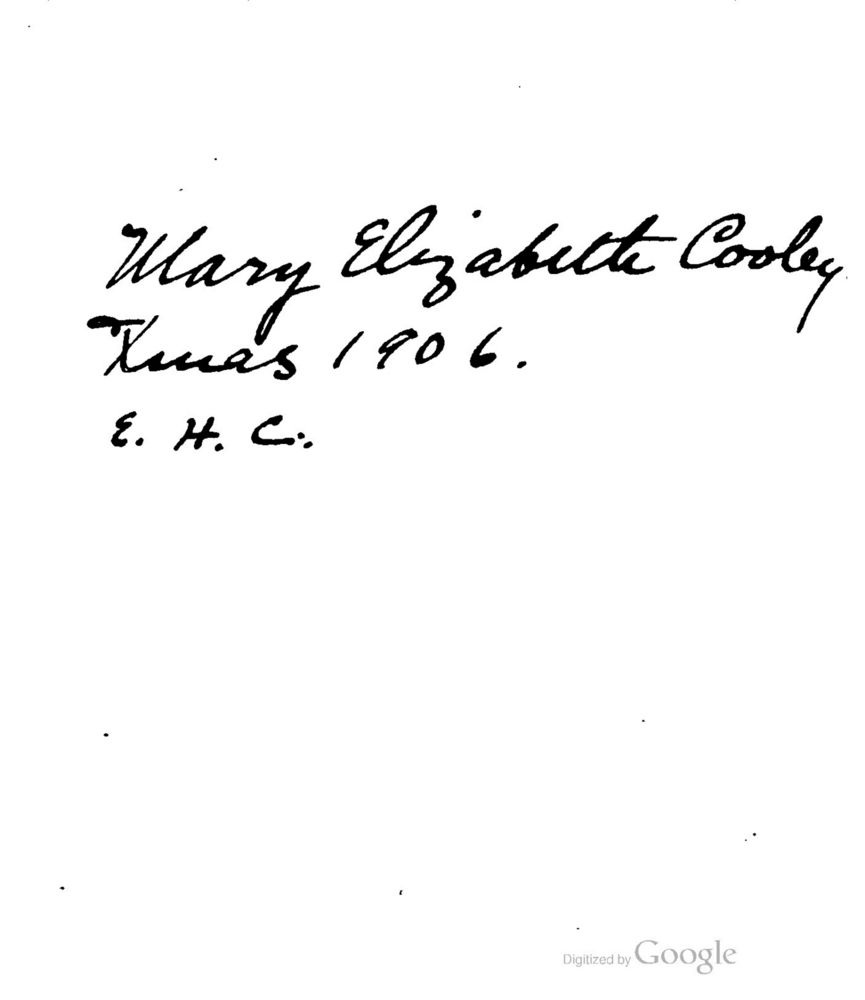 Mary Elizabeth Cooley
Xmas 1906.
E. H. C.
Digitized by Google